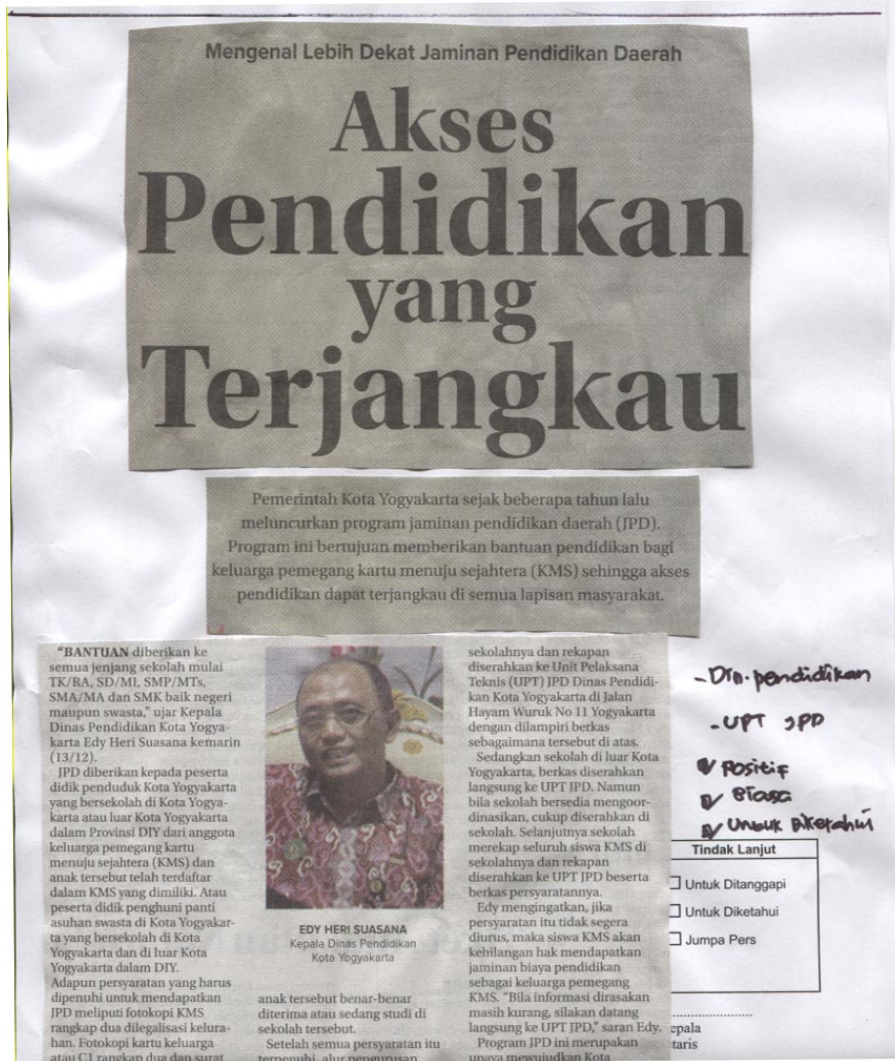 Mengenal Lebih Dekat Jaminan Pendidikan Daerah
Akses
Pendidikan
yang
Terjangkau
Pemerintah Kota Yogyakarta sejak beberapa tahun lalu
meluncurkan program jaminan pendidikan daerah (JPD).
Program ini bertujuan memberikan bantuan pendidikan bagi
keluarga pemegang kartu menuju sejahtera (KMS) sehingga akses
pendidikan dapat terjangkau di semua lapisan masyarakat.
"BANTUAN diberikan ke
semua jenjang sekolah mulai
TK/RA, SD/MI, SMP/MTs,
SMA/MA dan SMK baik negeri
maupun swasta," ujar Kepala
Dinas Pendidikan Kota Yogya-
karta Edy Heri Suasana kemarin
(13/12).
JPD diberikan kepada peserta
didik penduduk Kota Yogyakarta
yang bersekolah di Kota Yogya-
karta atau luar Kota Yogyakarta
dalam Provinsi DIY dari anggota
keluarga pemegang kartu
menuju sejahtera (KMS) dan
anak tersebut telah terdaftar
dalam KMS yang dimiliki. Atau
peserta didik penghuni panti
asuhan swasta di Kota Yogyakar-
ta yang bersekolah di Kota
Yogyakarta dan di luar Kota
Yogyakarta dalam DIY.
Adapun persyaratan yang harus
dipenuhi untuk mendapatkan
JPD meliputi fotokopi KMS
rangkap dua dilegalisasi kelura-
han. Fotokopi kartu keluarga
atau C1 rangkap dua dan surat
EDY HERI SUASANA
Kepala Dinas Pendidikan
Kota Yogyakarta
anak tersebut benar-benar
diterima atau sedang studi di
sekolah tersebut.
Setelah semua persyaratan itu
terpenuhi, alur pengurusan
sekolahnya dan rekapan
diserahkan ke Unit Pelaksana
Teknis (UPT) JPD Dinas Pendidi-
kan Kota Yogyakarta di Jalan
Hayam Wuruk No 11 Yogyakarta
dengan dilampiri berkas
sebagaimana tersebut di atas.
Sedangkan sekolah di luar Kota
Yogyakarta, berkas diserahkan
langsung ke UPT JPD. Namun
bila sekolah bersedia mengoor-
dinasikan, cukup diserahkan di
sekolah. Selanjutnya sekolah
merekap seluruh siswa KMS di
sekolahnya dan rekapan
diserahkan ke UPT JPD beserta
berkas persyaratannya.
Edy mengingatkan, jika
persyaratan itu tidak segera
diurus, maka siswa KMS akan
kehilangan hak mendapatkan
jaminan biaya pendidikan
sebagai keluarga pemegang
KMS. "Bila informasi dirasakan
masih kurang, silakan datang
langsung ke UPT JPD," saran Edy.
Program JPD ini merupakan
upaya mewujudkan Kota
- Din. pendidikan
- UPT JPD
Positif
Biasa
Untuk Diketahui
Tindak Lanjut
Untuk Ditanggapi
Untuk Diketahui
Jumpa Pers
epala
taris